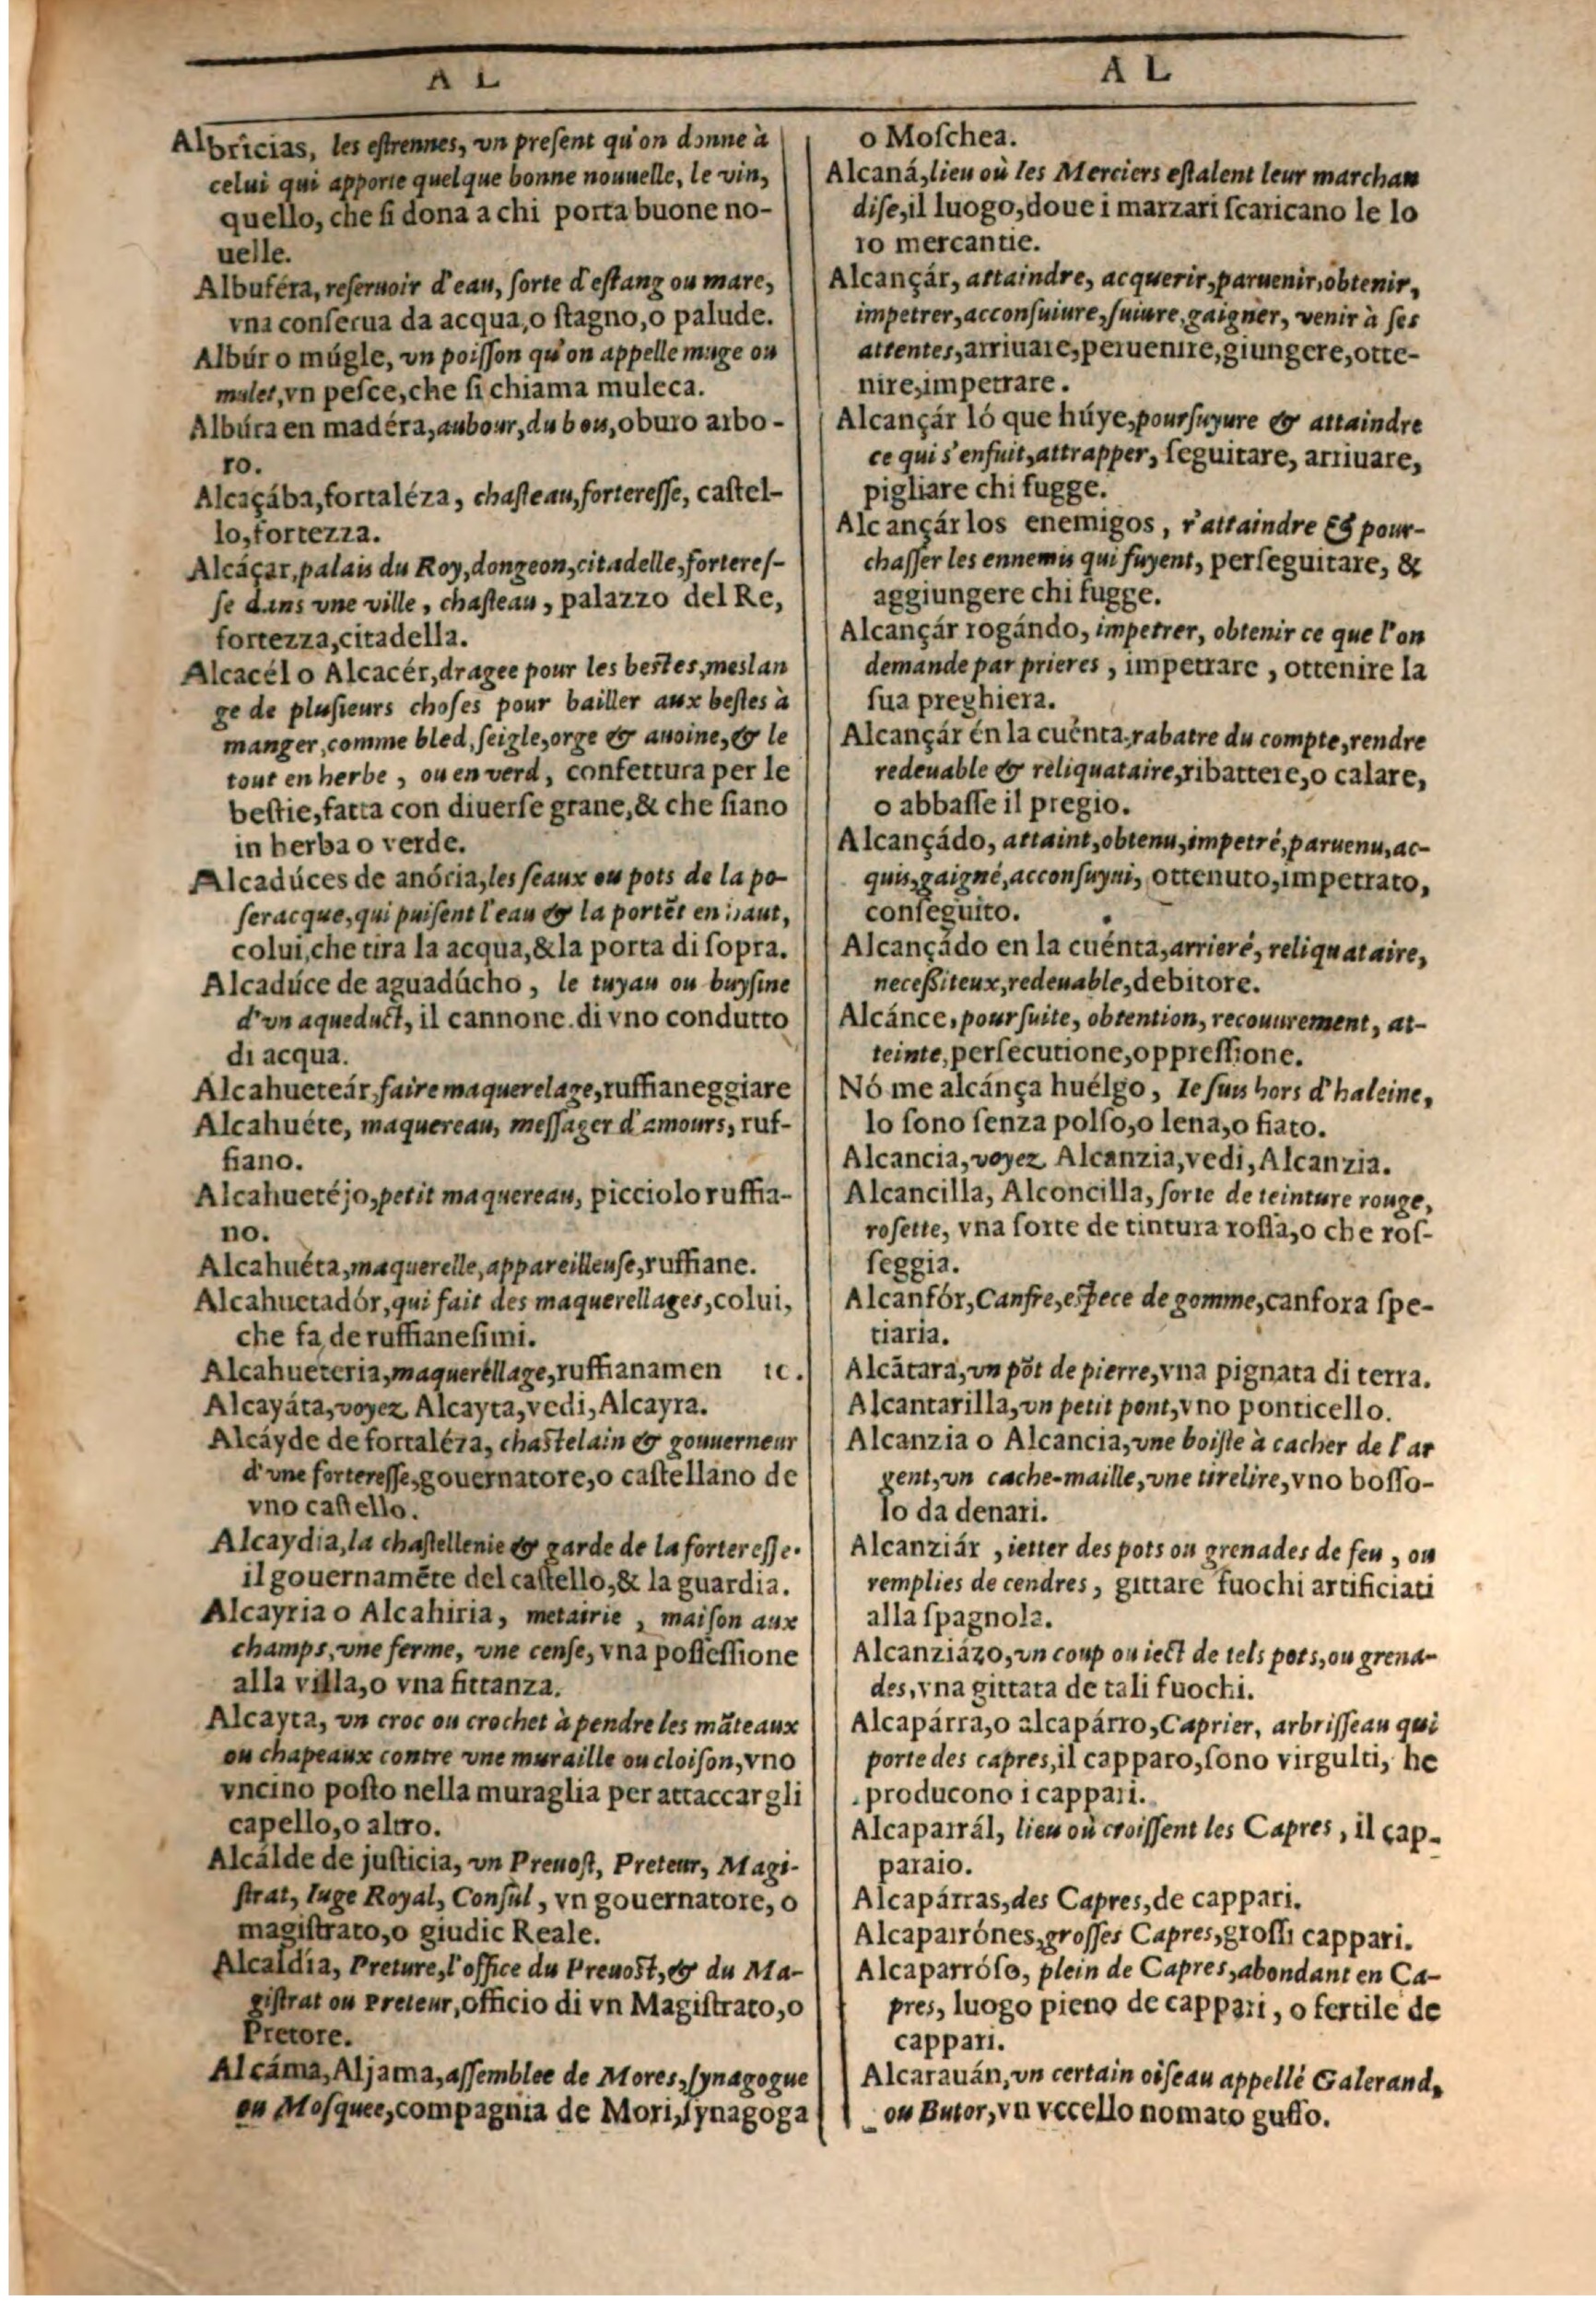 A L
Albrícias, les estrennes, vn present qu'on donne à
celui qui apporte quelque bonne nouuelle, le vin,
quello, che si dona a chi porta buone no-
uelle.
Albuféra, reseruoir d'eau, sorte d'estang ou mare,
vna conserua da acqua, o stagno, o palude.
Albúr o múgle, vn poisson qu'on appelle muge ou
mulet, vn pesce, che si chiama muleca.
Albúra en madéra, aubour, du bou, oburo arbo-
ro.
Alcaçába, fortaléza, chasteau, forteresse, castel-
lo, fortezza.
Alcáçar, palais du Roy, dongeon, citadelle, forteres-
se dans vne ville, chasteau, palazzo del Re,
fortezza, citadella.
Alcacél o Alcacér, dragee pour les bestes, meslan
ge de plusieurs choses pour bailler aux bestes à
manger, comme bled, seigle, orge & auoine, & le
tout en herbe, ou en verd, confettura per le
bestie, fatta con diuerse grane, & che siano
in herba o verde.
Alcadúces de anória, les seaux ou pots de la po-
seracque, qui puisent l'eau & la portẽt en haut,
colui, che tira la acqua, & la porta di sopra.
Alcadúce de aguadúcho, le tuyau ou buysine
d'vn aqueduct, il cannone. di vno condutto
di acqua.
Alcahueteár, faire maquerelage, ruffianeggiare
Alcahuéte, maquereau, messager d'amours, ruf-
fiano.
Alcahuetéjo, petit maquereau, picciolo ruffia-
no.
Alcahuéta, maquerelle, appareilleuse, ruffiane.
Alcahuetadór, qui fait des maquerellages, colui,
che fa, de ruffianesimi.
Alcahueteria, maquerèllage, ruffianamen tc.
Alcayáta, voyez Alcayta, vedi, Alcayra.
Alcáyde de fortaléza, chastelain & gouuerneur
d'vne forteresse, gouernatore, o castellano de
vno castello.
Alcaydía, la chastellenie & garde de la forteresse.
il gouernamẽte del castello, & la guardia.
Alcayria o Alcahiria, metairie, maison aux
champs, vne ferme, vne cense, vna possessione
alla villa, o vna fittanza.
Alcayta, vn croc ou crochet à pendre les mãteaux
ou chapeaux contre vne muraille ou cloison, vno
vncino posto nella muraglia per attaccar gli
capello, o altro.
Alcálde de justicia, vn Preuost, Preteur, Magi-
strat, Iuge Royal, Consul, vn gouernatore, o
magistrato, o giudic Reale.
Alcaldía, Preture, l'office du Preuost, & du Ma-
gistrat ou Preteur, officio di vn Magistrato, o
Pretore.
Alcáma, Aljama, assemblee de Mores, synagogue
ou Mosquee, compagnia de Mori, synagoga
A L
o Moschea.
Alcaná, lieu où les Merciers estalent leur marchan
dise, il luogo, doue i marzari scaricano le lo
ro mercantie.
Alcançár, attaindre, acquerir, paruenir, obtenir,
impetrer, acconsuiure, suiure, gaigner, venir à ses
attentes, arriuare, peruenire, giungere, otte-
nire, impetrare.
Alcançár ló que húye, poursuyure & attaindre
ce qui s'enfuit, attrapper, seguitare, arriuare,
pigliare chi fugge.
Alcançár los enemigos, r'attaindre & pour-
chasser les ennemis qui fuyent, perseguitare, &
aggiungere chi fugge.
Alcançár rogándo, impetrer, obtenir ce que l'on
demande par prieres, impetrare, ottenire la
sua preghiera.
Alcançár én la cuènta, rabatre du compte, rendre
redeuable & reliquataire, ribattere, o calare,
o abbasse il pregio.
Alcançádo, attaint, obtenu, impetré, paruenu, ac-
quis, gaigné, acconsuyui, ottenuto, impetrato,
conseguito.
Alcançádo en la cuénta, arrieré, reliquataire,
necessiteux, redeuable, debitore.
Alcánce, poursuite, obtention, recouurement, at-
teinte, persecutione, oppressione.
Nó me alcánça huélgo, Ie suis hors d'haleine,
Io sono senza polso, o lena, o fiato.
Alcancia, voyez Alcanzia, vedi, Alcanzia.
Alcancilla, Alconcilla, sorte de teinture rouge,
rosette, vna sorte de tintura rossa, o che ros-
seggia.
Alcanfór, Canfre, espece de gomme, canfora spe-
tiaria.
Alcãtara, vn pôt de pierre, vna pignata di terra.
Alcantarilla, vn petit pont, vno ponticello.
Alcanzia o Alcancia, vne boiste à cacher de l'ar
gent, vn cache-maille, vne tirelire, vno bosso-
lo da denari.
Alcanziár, ietter des pots ou grenades de feu, ou
remplies de cendres, gittare fuochi artificiati
alla spagnola.
Alcanziázo, vn coup ou iect de tels pots, ou grena-
des, vna gittata de tali fuochi.
Alcapárra, o alcapárro, Caprier, arbrisseau qui
porte des capres, il capparo, sono virgulti, he
producono i cappari.
Alcaparrál, lieu où croissent les Capres, il cap-
paraio.
Alcapárras, des Capres, de cappari.
Alcaparrónes, grosses Capres, grossi cappari.
Alcaparróso, plein de Capres, abondant en Ca-
pres, luogo pieno de cappari, o fertile de
cappari.
Alcarauán, vn certain oiseau appellé Galerand,
ou Butor, vn vccello nomato guffo.